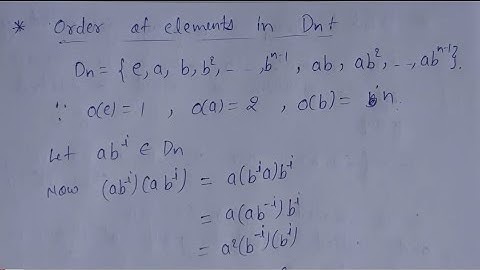 * Order of elements in Dn :
Dn = { e, a, b, b², ... , bⁿ⁻¹, ab, ab², ..., abⁿ⁻¹}.
∵ o(e) = 1 , o(a) = 2 , o(b) = n.
Let abⁱ ∈ Dn
Now (abⁱ)(abⁱ) = a(bⁱa)bⁱ
= a(ab⁻ⁱ)bⁱ
= a²(b⁻ⁱ)(bⁱ)